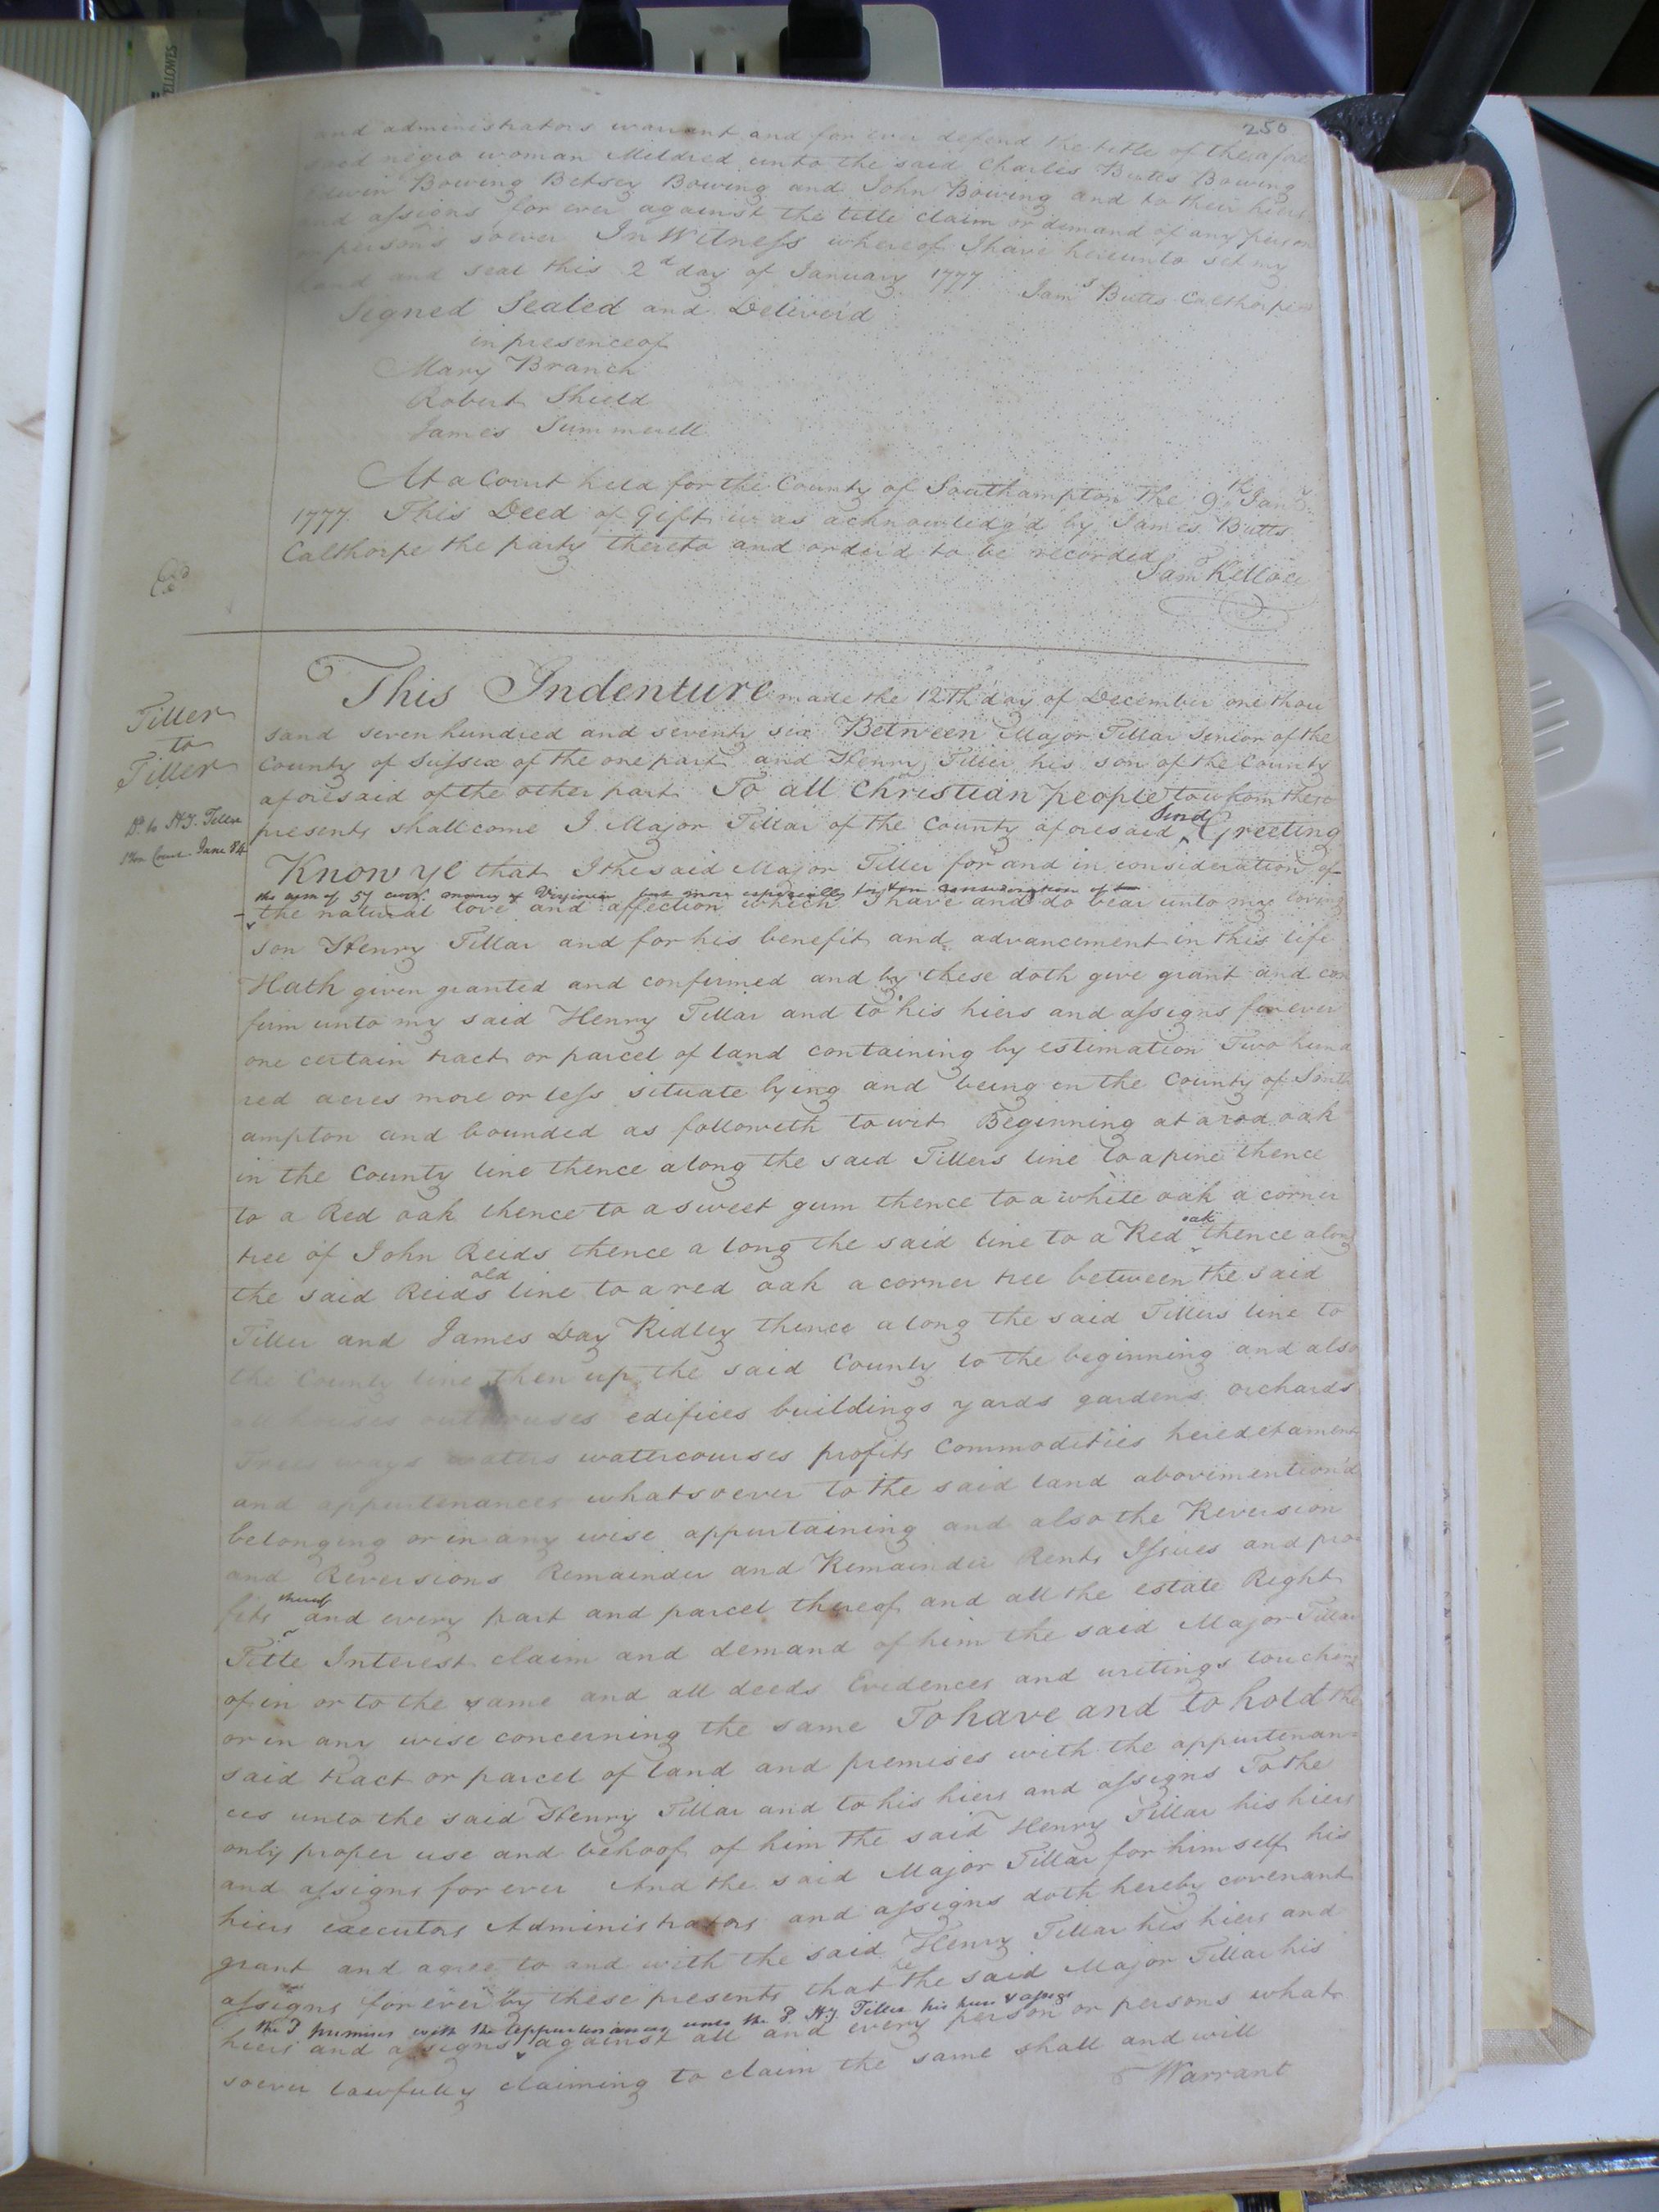 250
and administrators warrant and for ever defend the title of the afore
said negro woman Mildred unto the said Charles Butts Bowing
Edwin Bowing Betsey Bowing and John Bowing and to their hiers
and assigns for ever against the title claim or demand of any person
or persons soever In Witness whereof I have hereunto set my
hand and seal this 2d day of January 1777 Jams Butts Calthorpe
Signed Sealed and Deliver'd
in presence of
Mary Branch
Robert Shield
James Summerell
At a Court held for the County of Southampton the 9th Jany
1777. This Deed of Gift was acknowledg'd by James Butts
Calthorpe the party thereto and order'd to be recorded
Exd
Sam Kelloe
Tiller
to
Tiller
Dd to Hy. Tiller
June 84
This Indenture made the 12th day of December one thou
sand seven hundred and seventy six Between Major Tillar Senior of the
County of Sussex of the one part and Henry Tiller his son of the County
aforesaid of the other part. To all Christian people to whom these
presents shall come I Major Tillar of the County aforesaid Send Greeting
Know ye that I the said Major Tiller for and in consideration of
the sum of 5/ curt. money of Virginia but more especially for the consideration of
the natural love and affection which I have and do bear unto my loving
son Henry Tillar and for his benefit and advancement in this life
Hath given granted and confirmed and by these doth give grant and con
firm unto my said Henry Tillar and to his hiers and assigns forever
one certain tract or parcel of land containing by estimation Two hund
red acres more or less situate lying and being in the County of South
ampton and bounded as followeth to wit Beginning at a red oak
in the County line thence along the said Tillers line to a pine thence
to a Red oak thence to a sweet gum thence to a white oak a corner
tree of John Reids thence along the said line to a Red oak thence along
the said Reids old line to a red oak a corner tree between the said
Tiller and James Day Ridley thence along the said Tillers line to
the County line then up the said County to the beginning and also
all houses outhouses edifices buildings yards gardens orchards
Trees ways waters watercourses profits Commodities heredetament
and appurtenances whatsoever to the said land abovemention'd
belonging or in any wise appurtaining and also the Reversion
and Reversions Remainder and Remainder Rents Issues and pro
fits thereof and every part and parcel thereof and all the estate Right
Title Interest claim and demand of him the said Major Tillar
of in or to the same and all deeds Evidences and writings touching
or in any wise concerning the same To have and to hold the
said tract or parcel of land and premises with the appurtenan
ces unto the said Henry Tillar and to his hiers and assigns To the
only proper use and behoof of him the said Henry Tillar his hiers
and assigns for ever And the said Major Tillar for himself his
hiers executors Administrators and assigns doth hereby covenant
grant and agree to and with the said Henry Tillar his hiers and
assigns forever by these presents that he the said Major Tillar his
the sd premises with the appurtenances unto the sd Hy. Tiller his heirs & assigs
hiers and assigns against all and every person or persons what
soever lawfully claiming to claim the same shall and will
Warrant